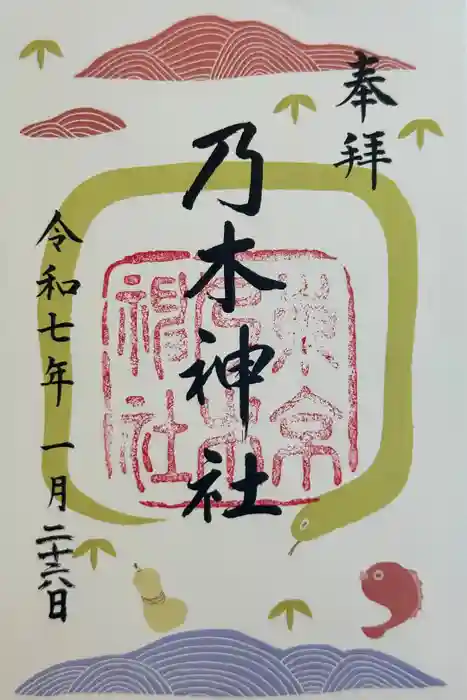 奉拝
乃木神社
令和七年一月二十六日
東京
乃木
神社